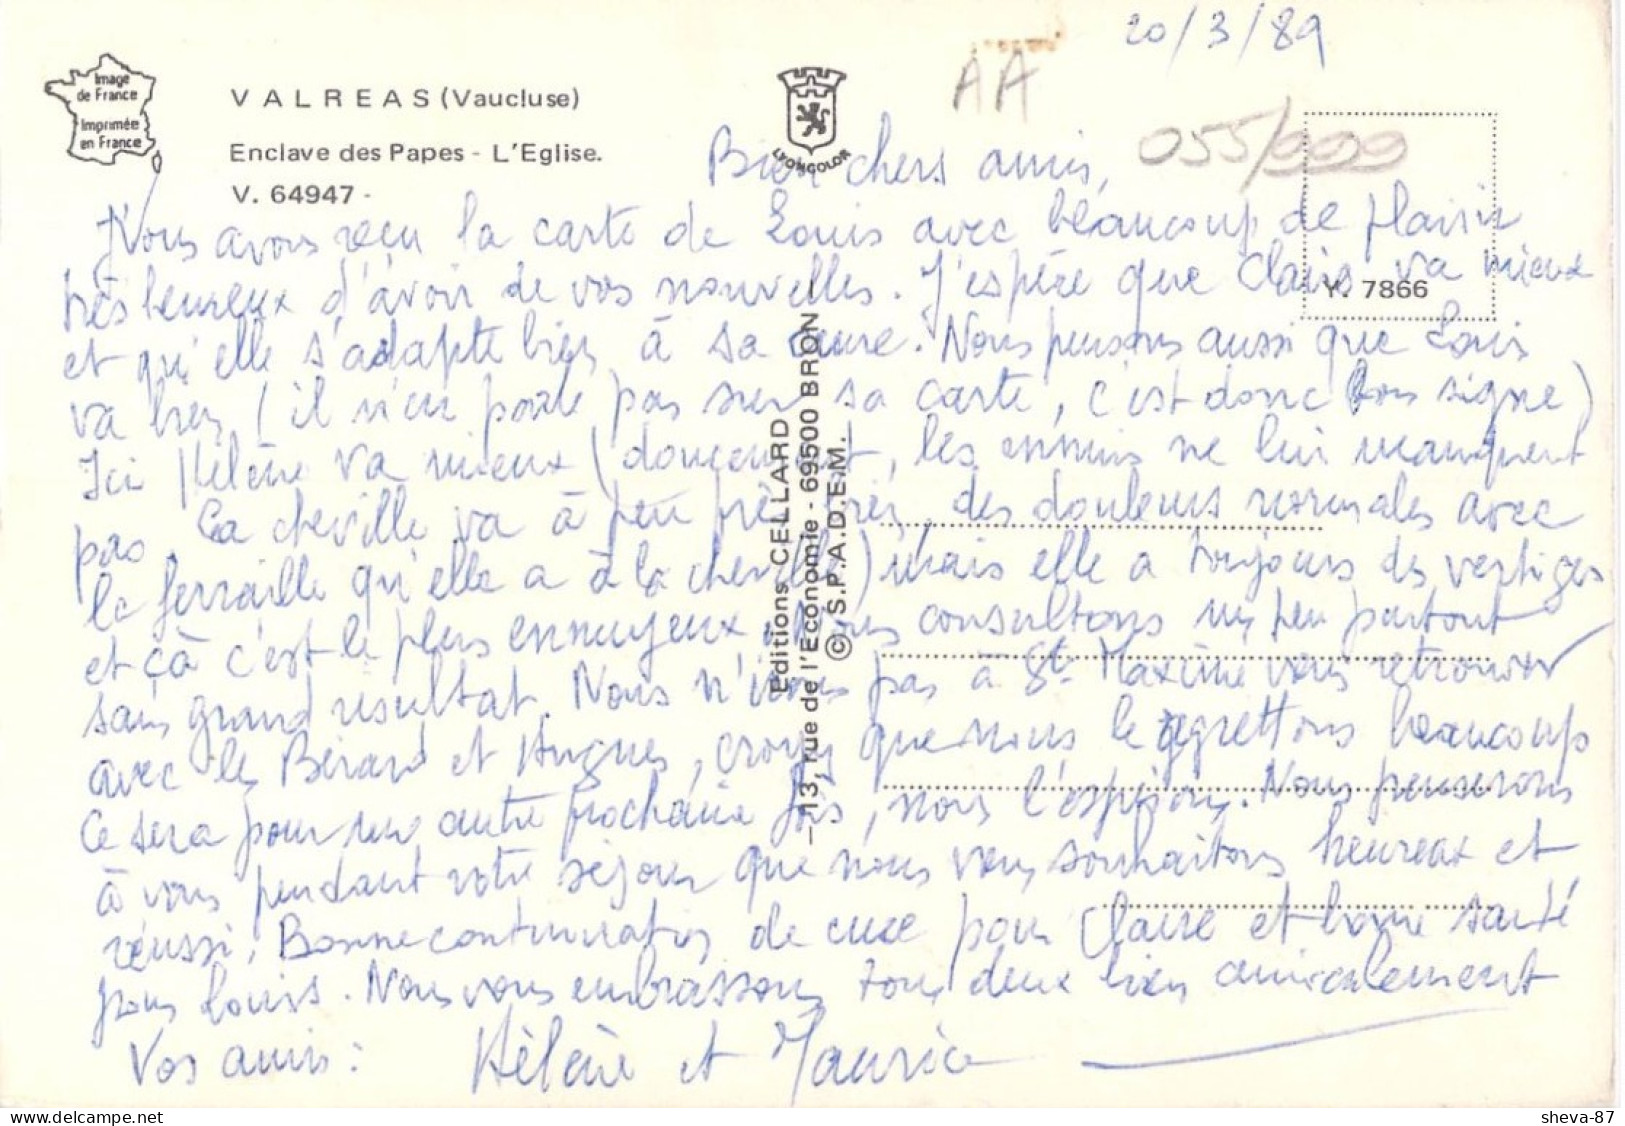 20/3/89
AA
055/999
Image
de France
Imprimée
en France
VALREAS (Vaucluse)
Enclave des Papes - L'Eglise.
V. 64947 -
LYONCOLOR
Y. 7866
Editions CELLARD
13, rue de l'Economie - 69500 BRON
© S.P.A.D.E.M.
Bien chers amis,
Nous avons reçu la carte de Louis avec beaucoup de plaisir
très heureux d'avoir de vos nouvelles. J'espère que Claire va mieux
et qu'elle s'adapte bien à sa cure. Nous pensons aussi que Louis
va bien (il n'en parle pas sur sa carte, c'est donc bon signe)
Ici Hélène va mieux (doucement, les ennuis ne lui manquent
pas. La cheville va à peu près bien, des douleurs normales avec
la ferraille qu'elle a à la cheville) mais elle a toujours des vertiges
et çà c'est le plus ennuyeux. Nous consultons un peu partout
sans grand résultat. Nous n'irons pas à Ste Maxime vous retrouver
avec les Bérard et Hugues, croyez que nous le regrettons beaucoup
Ce sera pour une autre prochaine fois, nous l'espérons. Nous penserons
à vous pendant votre séjour que nous vous souhaitons heureux et
réussi. Bonne continuation de cure pour Claire et bonne santé
pour Louis. Nous vous embrassons tous deux bien amicalement
Vos amis : Hélène et Maurice
sheva-87